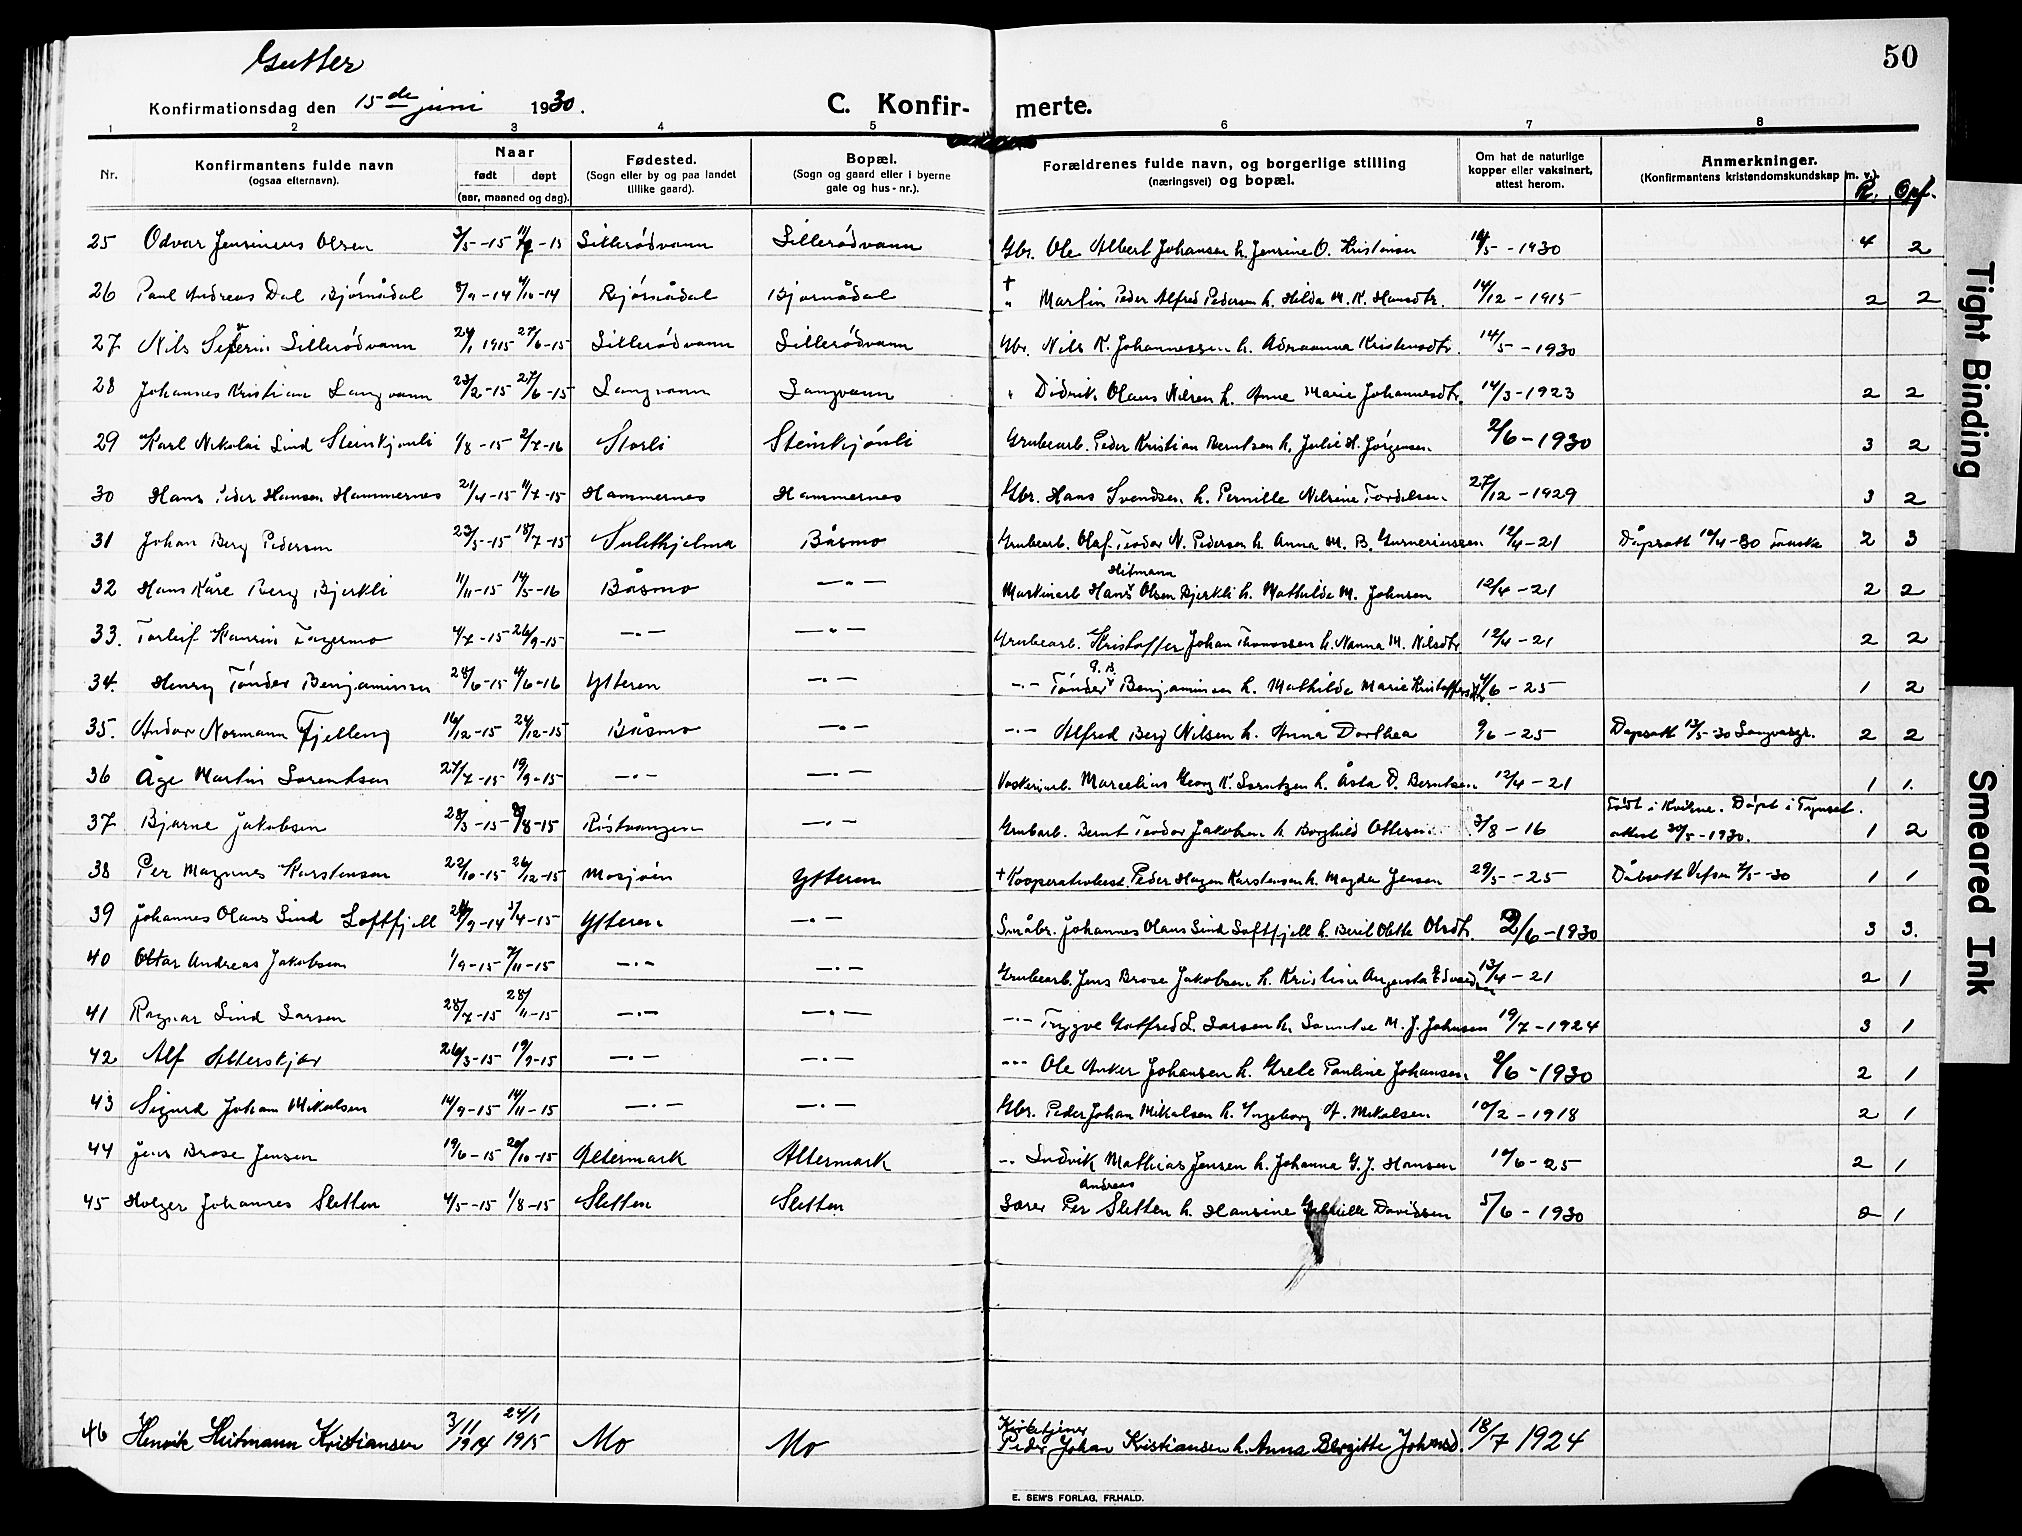 Gutter
50
Konfirmationsdag den 15de juni 1930.
C. Konfir- merte.
1 2 3 4 5 6 7 8
Nr.
Konfirmantens fulde navn
(ogsaa efternavn).
Naar
født døpt
(aar, maaned og dag).
Fødested.
(Sogn eller by og paa landet
tillike gaard).
Bopæl.
(Sogn og gaard eller i byerne
gate og hus-nr.).
Forældrenes fulde navn, og borgerlige stilling
(næringsvei) og bopæl.
Om hat de naturlige
kopper eller vaksinert,
attest herom.
Anmerkninger.
(Konfirmantens kristendomskundskap m. v.).
R. Opf.
25 Odvar Jensinius Olsen 3/5-15 -15 Lillerødvann Lillerødvann Gbr. Ole Albert Johansen h. Jensine O. Kristensen 14/5-1930 4 2
26 Paul Andreas Dal Bjørnådal 8/9-14 4/10-14 Bjørnådal Bjørnådal † " Martin Peder Alfred Pedersen h. Hilda M. K. Hansdtr. 14/12-1915 2 2
27 Nils Severin Lillerødvann 24/1 1915 27/6-15 Lillerødvann Lillerødvann Gbr. Nils K. Johannessen h. Adrianna Kristensdtr. 14/5-1930
28 Johannes Kristian Langvann 23/2-15 27/6-15 Langvann Langvann " Didrik Olaus Nilsen h. Anne Marie Johannesdtr. 14/3-1923 2 2
29 Karl Nikolai Lind Steinkjønli 1/8-15 2/7-16 Storli Steinkjønli Grubearb. Peder Kristian Berntsen h. Julie H. Jørgensen 2/6-1930 3 2
30 Hans Peder Hansen Hammernes 21/4-15 11/7-15 Hammernes Hammernes Gbr. Hans Svendsen h. Pernille Nilsine Tordelsen 27/12-1929 3 2
31 Johan Berg Pedersen 23/5-15 18/7-15 Sulithjelma Båsmo Grubearb. Olaf Teodor N. Pedersen h. Anna M. B. Gunneriussen 12/4-21 Dåpsatt 10/4-30 Fauske 2 3
32 Hans Kåre Berg Bjerkli 11/11-15 14/5-16 Båsmo —"— Maskinarb Hans Hitmann Olsen Bjerkli h. Mathilde M. Johnsen 12/4-21 2 2
33. Torleif Hansin Lagermo 4/7-15 26/9-15 —"— —"— Grubearb. Kristoffer Johan Thomassen h. Nanna M. Nilsdtr 12/4-21 2 2
34. Henry Tønder Benjaminsen 28/6-15 4/6-16 Ytteren —"— —"— Tønder Benjaminsen h. Mathilde Marie Kristoffersdtr. 9/6-25 1 2
35. Andor Normann Fjelleng 16/12-15 24/12-15 Båsmo —"— —"— Alfred Berg Nilsen h. Anna Dorthea 9/6-25 Dåpsatt 13/5-30 2 2
36 Åge Martin Sørentsen 27/7-15 19/9-15 —"— —"— Vaskeriarb. Marcelius Georg K. Sørntzen h. Åsta D. Berntsen 12/4-21 1 1.
37 Bjarne Jakobsen 28/3-15 8/8-15 Røstvangen —"— Grubarb. Bernt Teodor Jakobsen h Borghild Ottesen 3/8-16 Født i Kvikne. Døpt i Tynset. attest 30/5-1930. 1 2
38 Per Magnus Karstensen 22/10-15 26/12-15 Mosjøen Ytteren † Kooperativbest. Peder Hagen Karstensen h. Magda Jensen 29/5-25 Dåbsatt Vefsn 2/5-30 1 1
39 Johannes Olaus Lind Loftfjell 24/9-14 5/4-15 Ytteren —"— Småbr. Johannes Olaus Lind Loftfjell h. Beril Olette Olsdtr. 2/6-1930 3 3.
40 Ottar Andreas Jakobsen 1/9-15 7/11-15 —"— —"— Grubearb. Jens Brose Jakobsen h. Kristine Augusta Edvardsen 13/4-21 2 1
41 Ragnar Lind Larsen 28/7-15 28/11-15 —"— —"— —"— Trygve Gotfred L. Larsen h. M. J. Johnsen 19/7-1924 3 1
42 Alf Alterskjær 26/3-15 19/9-15 —"— —"— —"— Ole Anker Johansen h. Grete Pauline Johansen 2/6-1930 2 1
43 Sigurd Johan Mikalsen 14/9-15 14/11-15 —"— —"— Gbr. Peder Johan Mikalsen h. Ingeborg A. Mikalsen 10/2-1918 2 1
44 Jens Brose Jensen 19/6-15 20/10-15 Altermark Altermark —"— Ludvik Mathias Jensen h. Johanna G. J. Hansen 10/6-25 2 1
45 Holger Johannes Sletten 4/5-15 1/8-15 Sletten Sletten Lærer Per Andreas Sletten h. Hansine Davidsen 5/6-1930 2 1
46 Henrik Heitmann Kristiansen 3/11 1914 24/1 1915 Mo Mo Kirketjener Peder Johan Kristiansen h. Anna Bergitte Johnsd. 18/7 1924
E. SEM'S FORLAG, FR.HALD.
Tight Binding
Smeared Ink